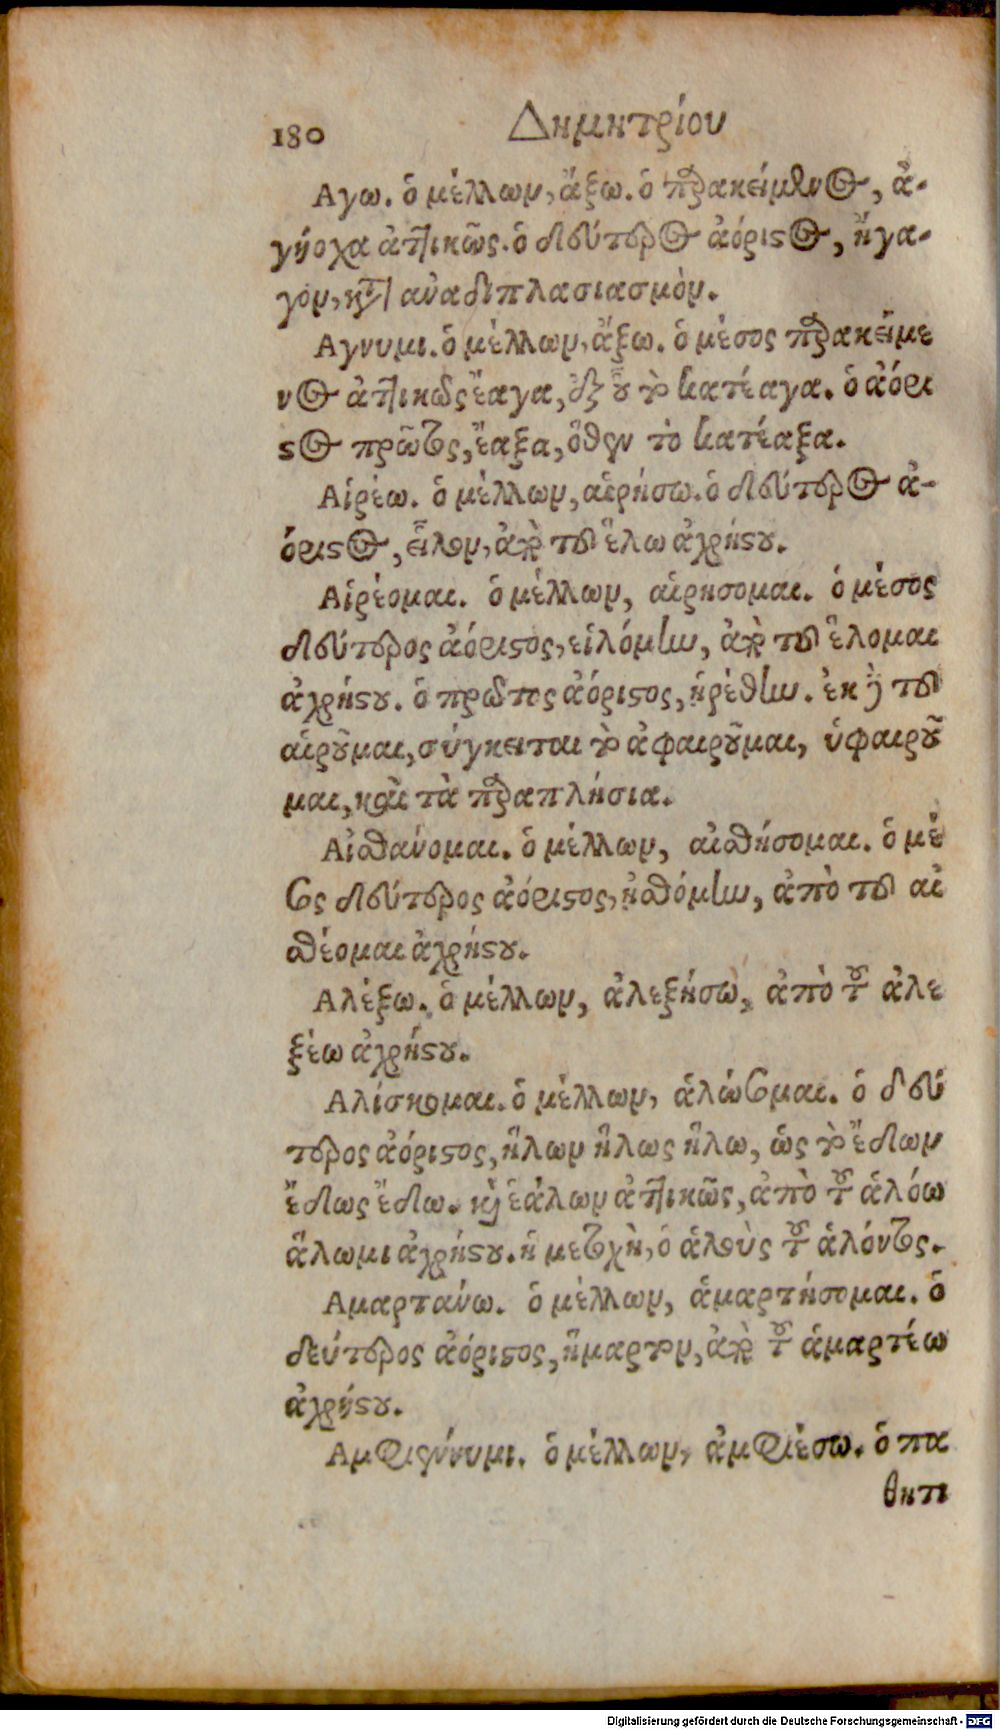 180 Δημητρίου
Αγω. ὁ μέλλων, ἄξω. ὁ παρακείμενος, ἀ-
γήοχα ἀττικῶς. ὁ δεύτερος ἀόριστος, ἤγα-
γον, κατ' ἀναδιπλασιασμὸν.
Αγνυμι. ὁ μέλλων, ἄξω. ὁ μέσος παρακείμε
νος ἀττικῶς ἔαγα, ἐξ οὗ τὸ κατέαγα. ὁ ἀόρι
στος πρῶτος, ἔαξα, ὅθεν τὸ κατέαξα.
Αἱρέω. ὁ μέλλων, αἱρήσω. ὁ δεύτερος ἀ-
όριστος, εἷλον, ἀπὸ τοῦ ἕλω ἀχρήστου.
Αἱρέομαι. ὁ μέλλων, αἱρησομαι. ὁ μέσος
δεύτερος ἀόριστος, εἱλόμην, ἀπὸ τοῦ ἕλομαι
ἀχρήστου. ὁ πρῶτος ἀόριστος, ἡρέθην. ἐκ δὲ τοῦ
αἱροῦμαι, σύγκειται τὸ ἀφαιροῦμαι, ὑφαιροῦ
μαι, καὶ τὰ παραπλήσια.
Αἰσθάνομαι. ὁ μέλλων, αἰσθήσομαι. ὁ μέ
σος δεύτερος ἀόριστος, ἠσθόμην, ἀπὸ τοῦ αἰ
σθέομαι ἀχρήστου.
Αλέξω. ὁ μέλλων, ἀλεξήσω, ἀπὸ τοῦ ἀλε
ξέω ἀχρήστου.
Αλίσκομαι. ὁ μέλλων, ἁλώσομαι. ὁ δεύ
τερος ἀόριστος, ἥλων ἥλως ἥλω, ὡς τὸ ἔδων
ἔδως ἔδω. καὶ ἑάλων ἀττικῶς, ἀπὸ τοῦ ἁλόω
ἅλωμι ἀχρήστου. ἡ μετοχὴ, ὁ ἁλοὺς τοῦ ἁλόντος.
Αμαρτάνω. ὁ μέλλων, ἁμαρτήσομαι. ὁ
δεύτερος ἀόριστος, ἥμαρτον, ἀπὸ τοῦ ἁμαρτέω
ἀχρήστου.
Αμφιεννυμι. ὁ μέλλων, ἀμφιέσω. ὁ πα
θητι
Digitalisierung gefördert durch die Deutsche Forschungsgemeinschaft - DFG